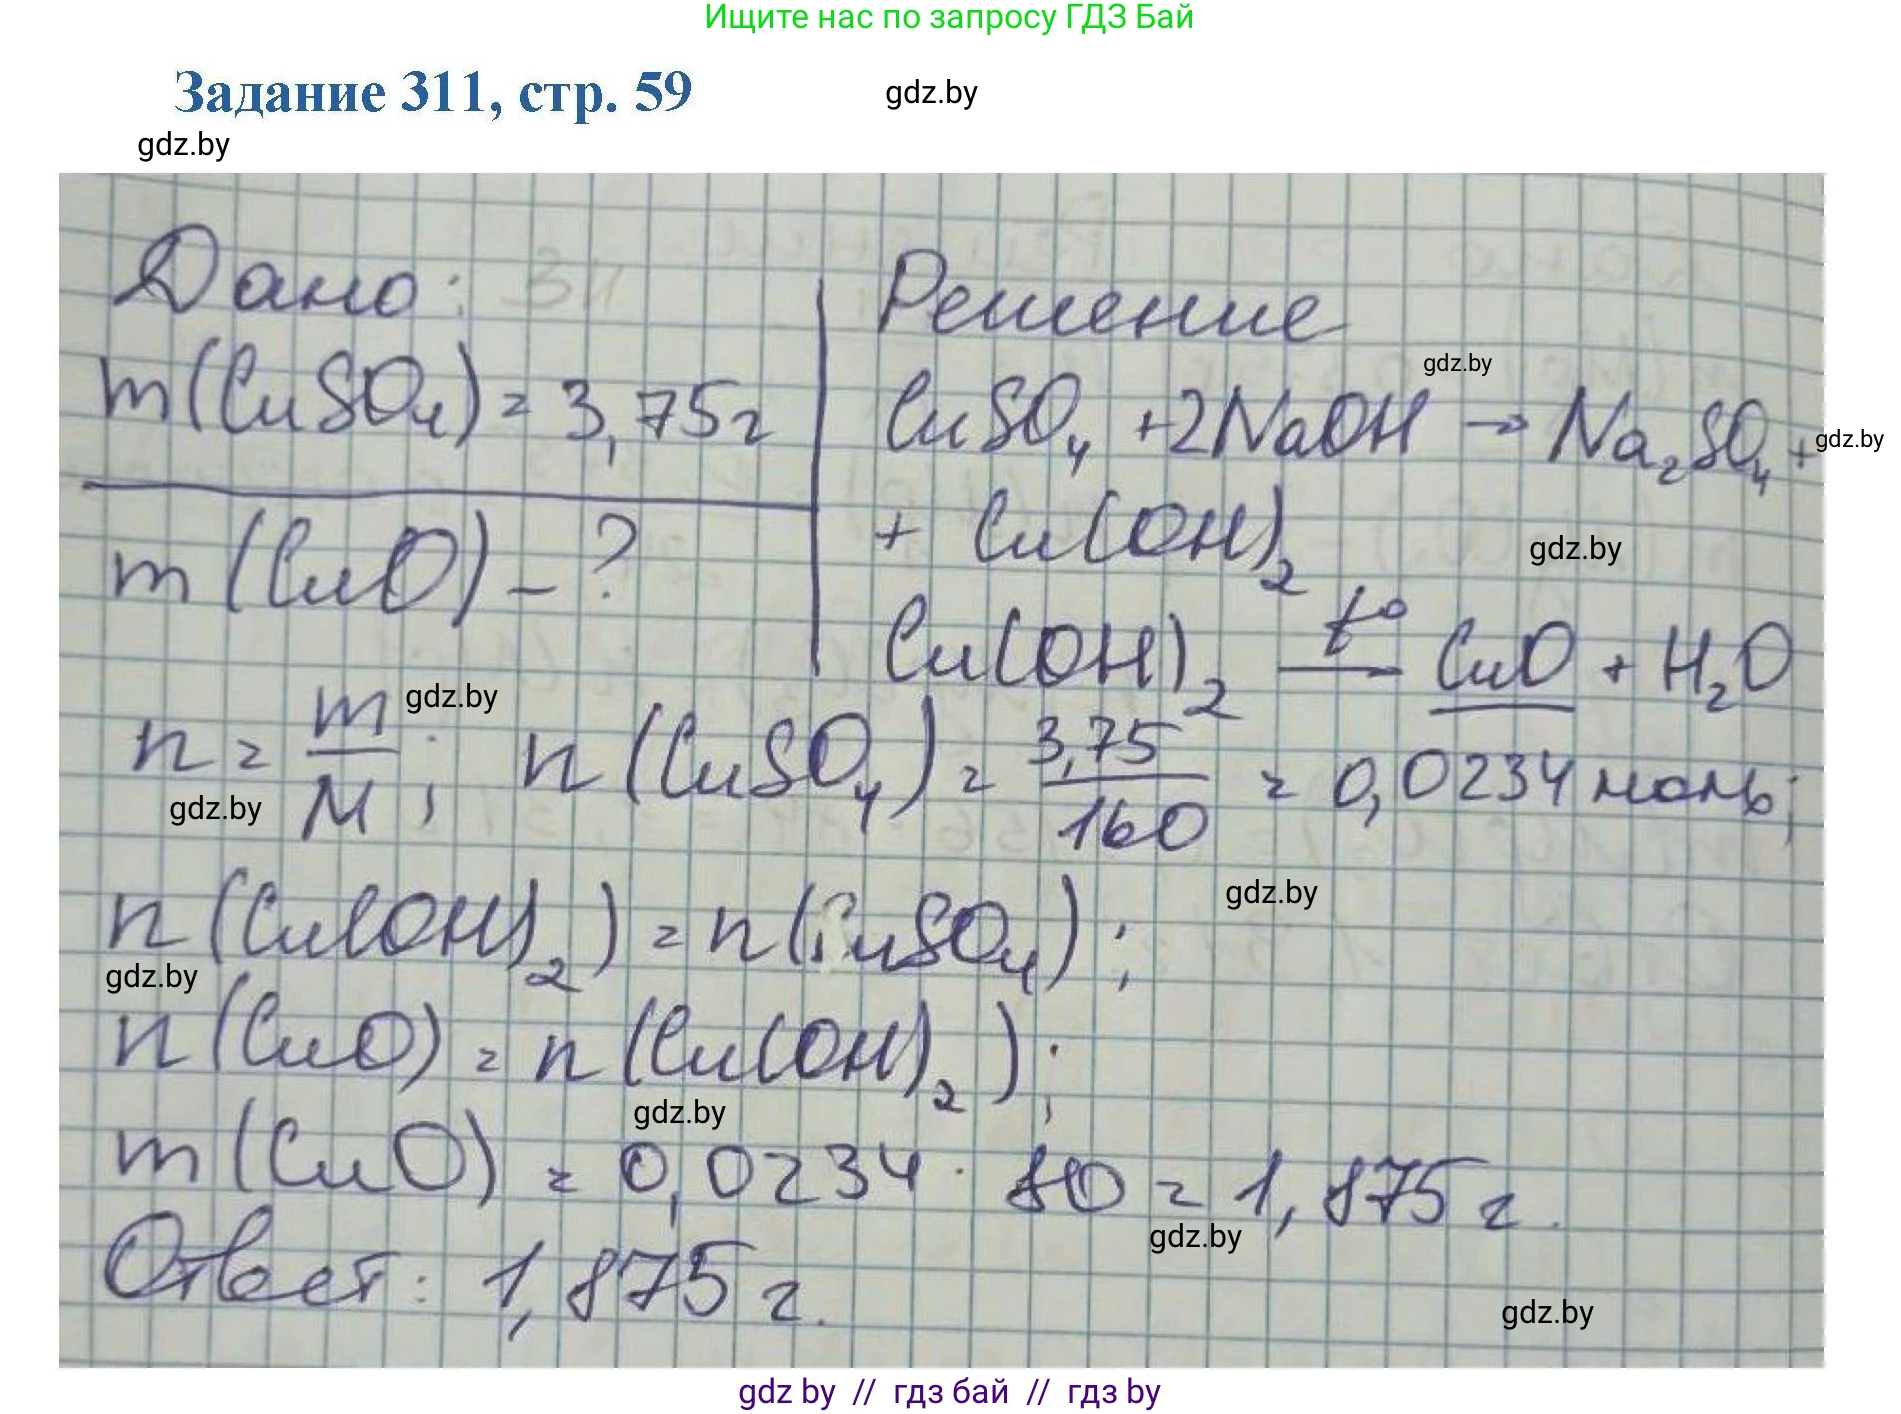 Ищите нас по запросу ГДЗ Бай
Задание 311, стр. 59
gdz.by
gdz.by
Дано: 311
m(CuSO₄) = 3,75г
m(CuO) - ?
Решение
gdz.by
CuSO₄ + 2NaOH → Na₂SO₄ +
gdz.by
+ Cu(OH)₂
gdz.by
Cu(OH)₂ t° CuO + H₂O
gdz.by
n = m/M; n(CuSO₄) = 3,75/160 = 0,0234 моль;
gdz.by
gdz.by
n(Cu(OH)₂) = n(CuSO₄);
gdz.by
n(CuO) = n(Cu(OH)₂);
gdz.by
m(CuO) = 0,0234 · 80 = 1,875 г.
gdz.by
Ответ: 1,875 г.
gdz.by
gdz by // гдз бай // гдз by